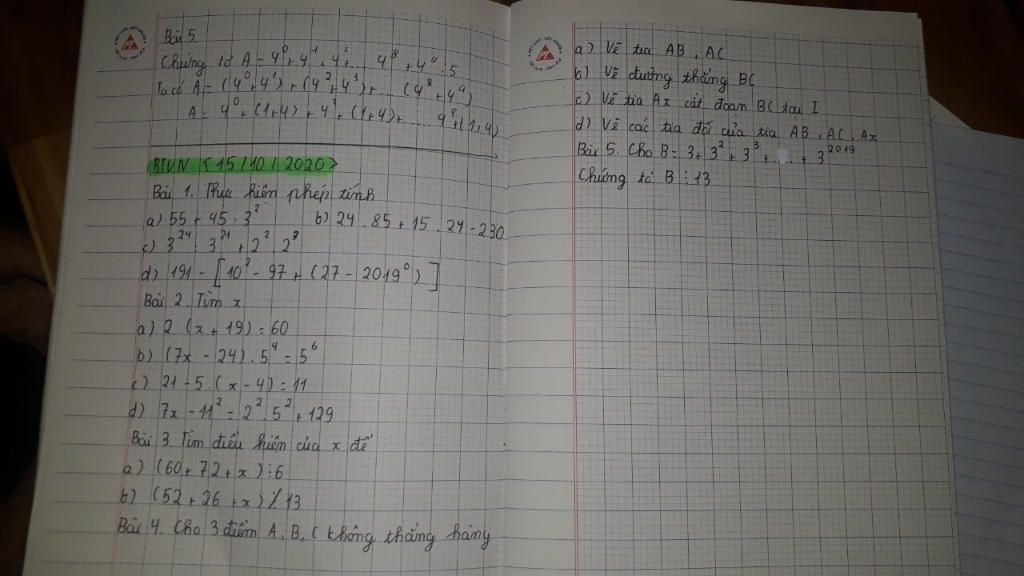 Bài 5.
Chứng tỏ A = 4⁰ + 4¹ + 4² + ... 4⁸ + 4⁹ ⋮ 5
Ta có A = (4⁰ + 4¹) + (4² + 4³) + ... (4⁸ + 4⁹)
A = 4⁰ + (1 + 4) + 4² + (1 + 4) + ... 4⁸ + (1 + 4)
BTVN (15/10/2020)
Bài 1. Thực hiện phép tính
a) 55 + 45 : 3² b) 24 . 85 + 15 . 24 - 230
c) 3²⁴ : 3²¹ + 2² . 2³
d) 191 - [10² - 97 + (27 - 2019⁰)]
Bài 2. Tìm x
a) 2 . (x + 19) = 60
b) (7x - 24) . 5⁴ = 5⁶
c) 21 - 5 . (x - 4) = 11
d) 7x - 11² = 2² . 5² + 129
Bài 3. Tìm điều kiện của x để
a) (60 + 72 + x) ⋮ 6
b) (52 + 26 + x) ⋮̸ 13
Bài 4. Cho 3 điểm A, B, C không thẳng hàng
a) Vẽ tia AB, AC
b) Vẽ đường thẳng BC
c) Vẽ tia Ax cắt đoạn BC tại I
d) Vẽ các tia đối của tia AB, AC, Ax
Bài 5. Cho B = 3 + 3² + 3³ + ... + 3²⁰¹⁹
Chứng tỏ B ⋮ 13